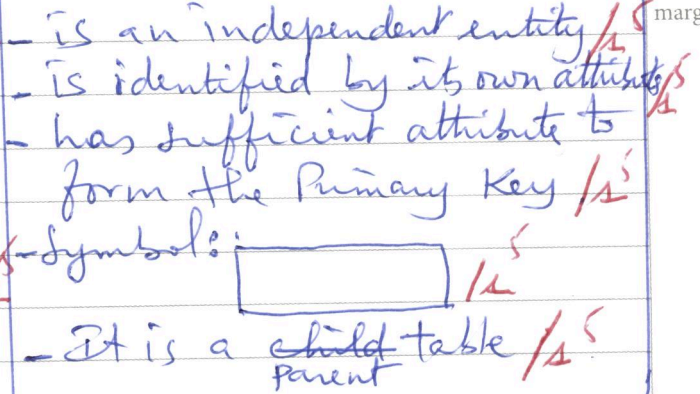 - is an independent entity /1⁵ marg
- is identified by its own attribute /1⁵
- has sufficient attribute to
form the Primary Key /1⁵
- Symbol: /1⁵
- It is a child table /1⁵
parent